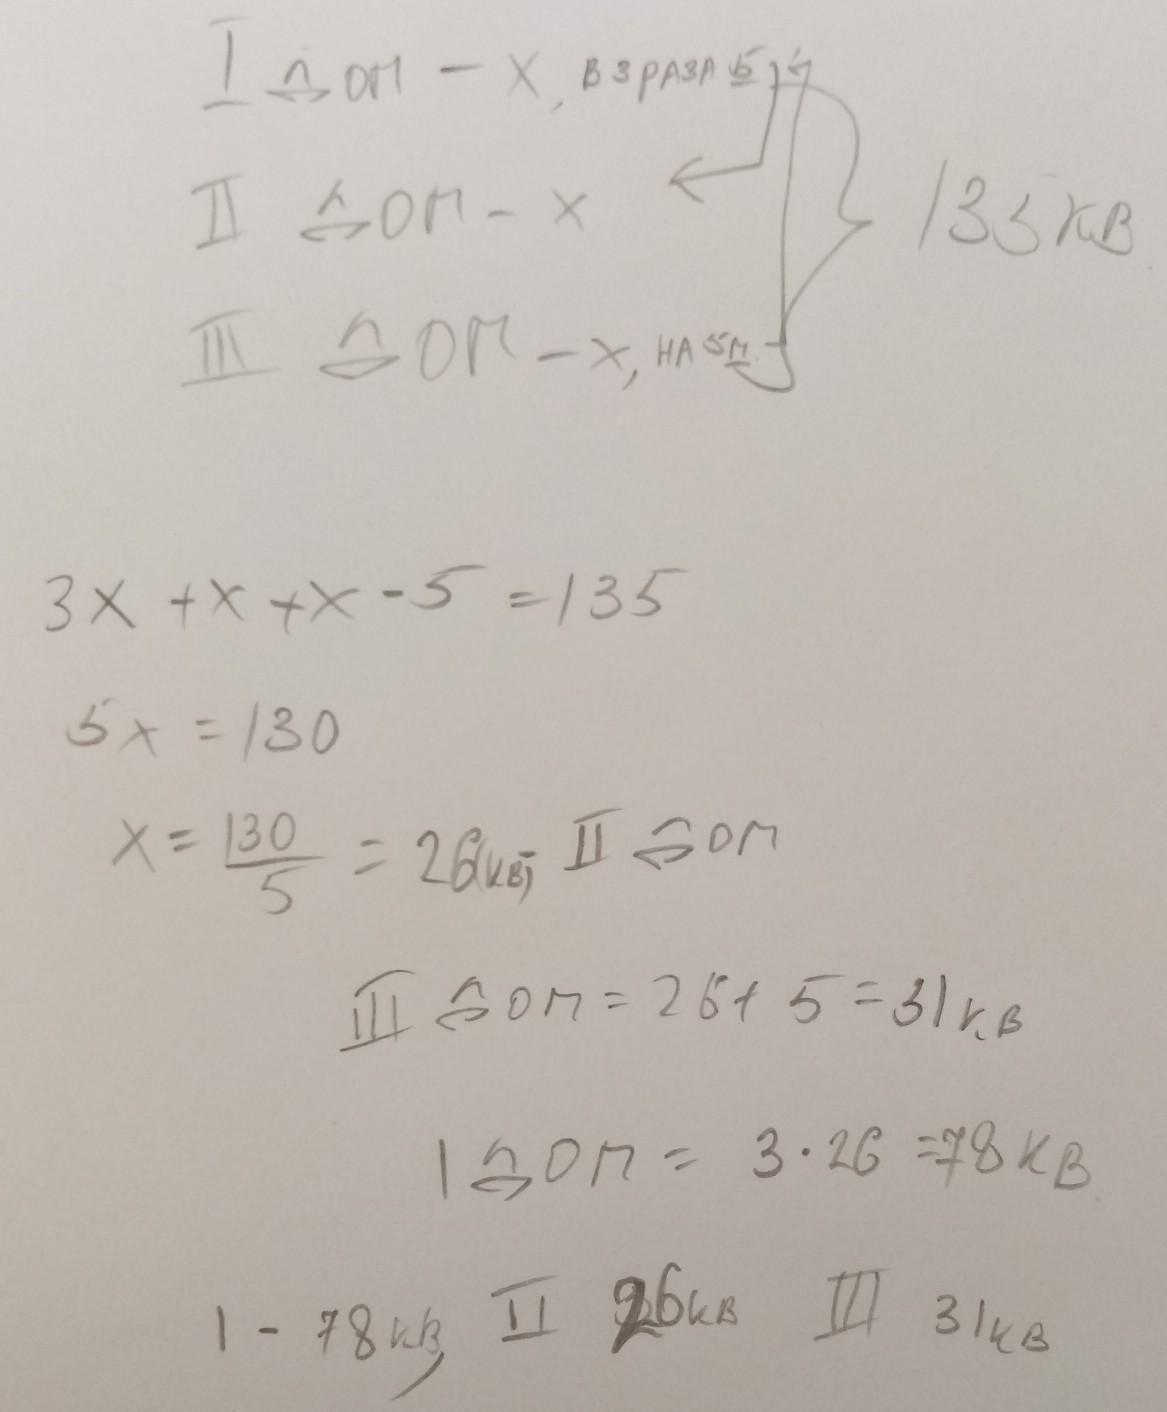 I ДОМ - X, В 3 РАЗА Б
135 КВ
II ДОМ - X
III ДОМ - X, НА 5 М
3X + X + X - 5 = 135
5X = 130
X = 130/5 = 26(КВ) II ДОМ
III ДОМ = 26 + 5 = 31 КВ
1 ДОМ = 3 · 26 = 78 КВ
1 - 78 КВ, II 26 КВ III 31 КВ